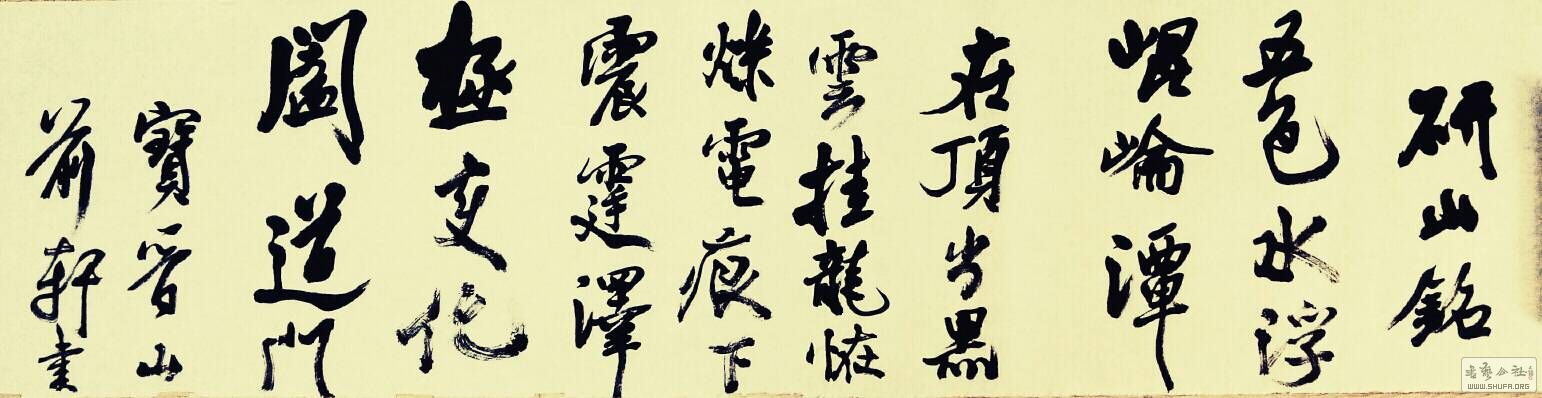 研山銘
五色水浮
崐崘潭
在頂出黑
雲挂龍怪
爍電痕下
震霆澤
極变化
闔道門
寶晉山
前軒書
WWW.SHUFA.ORG